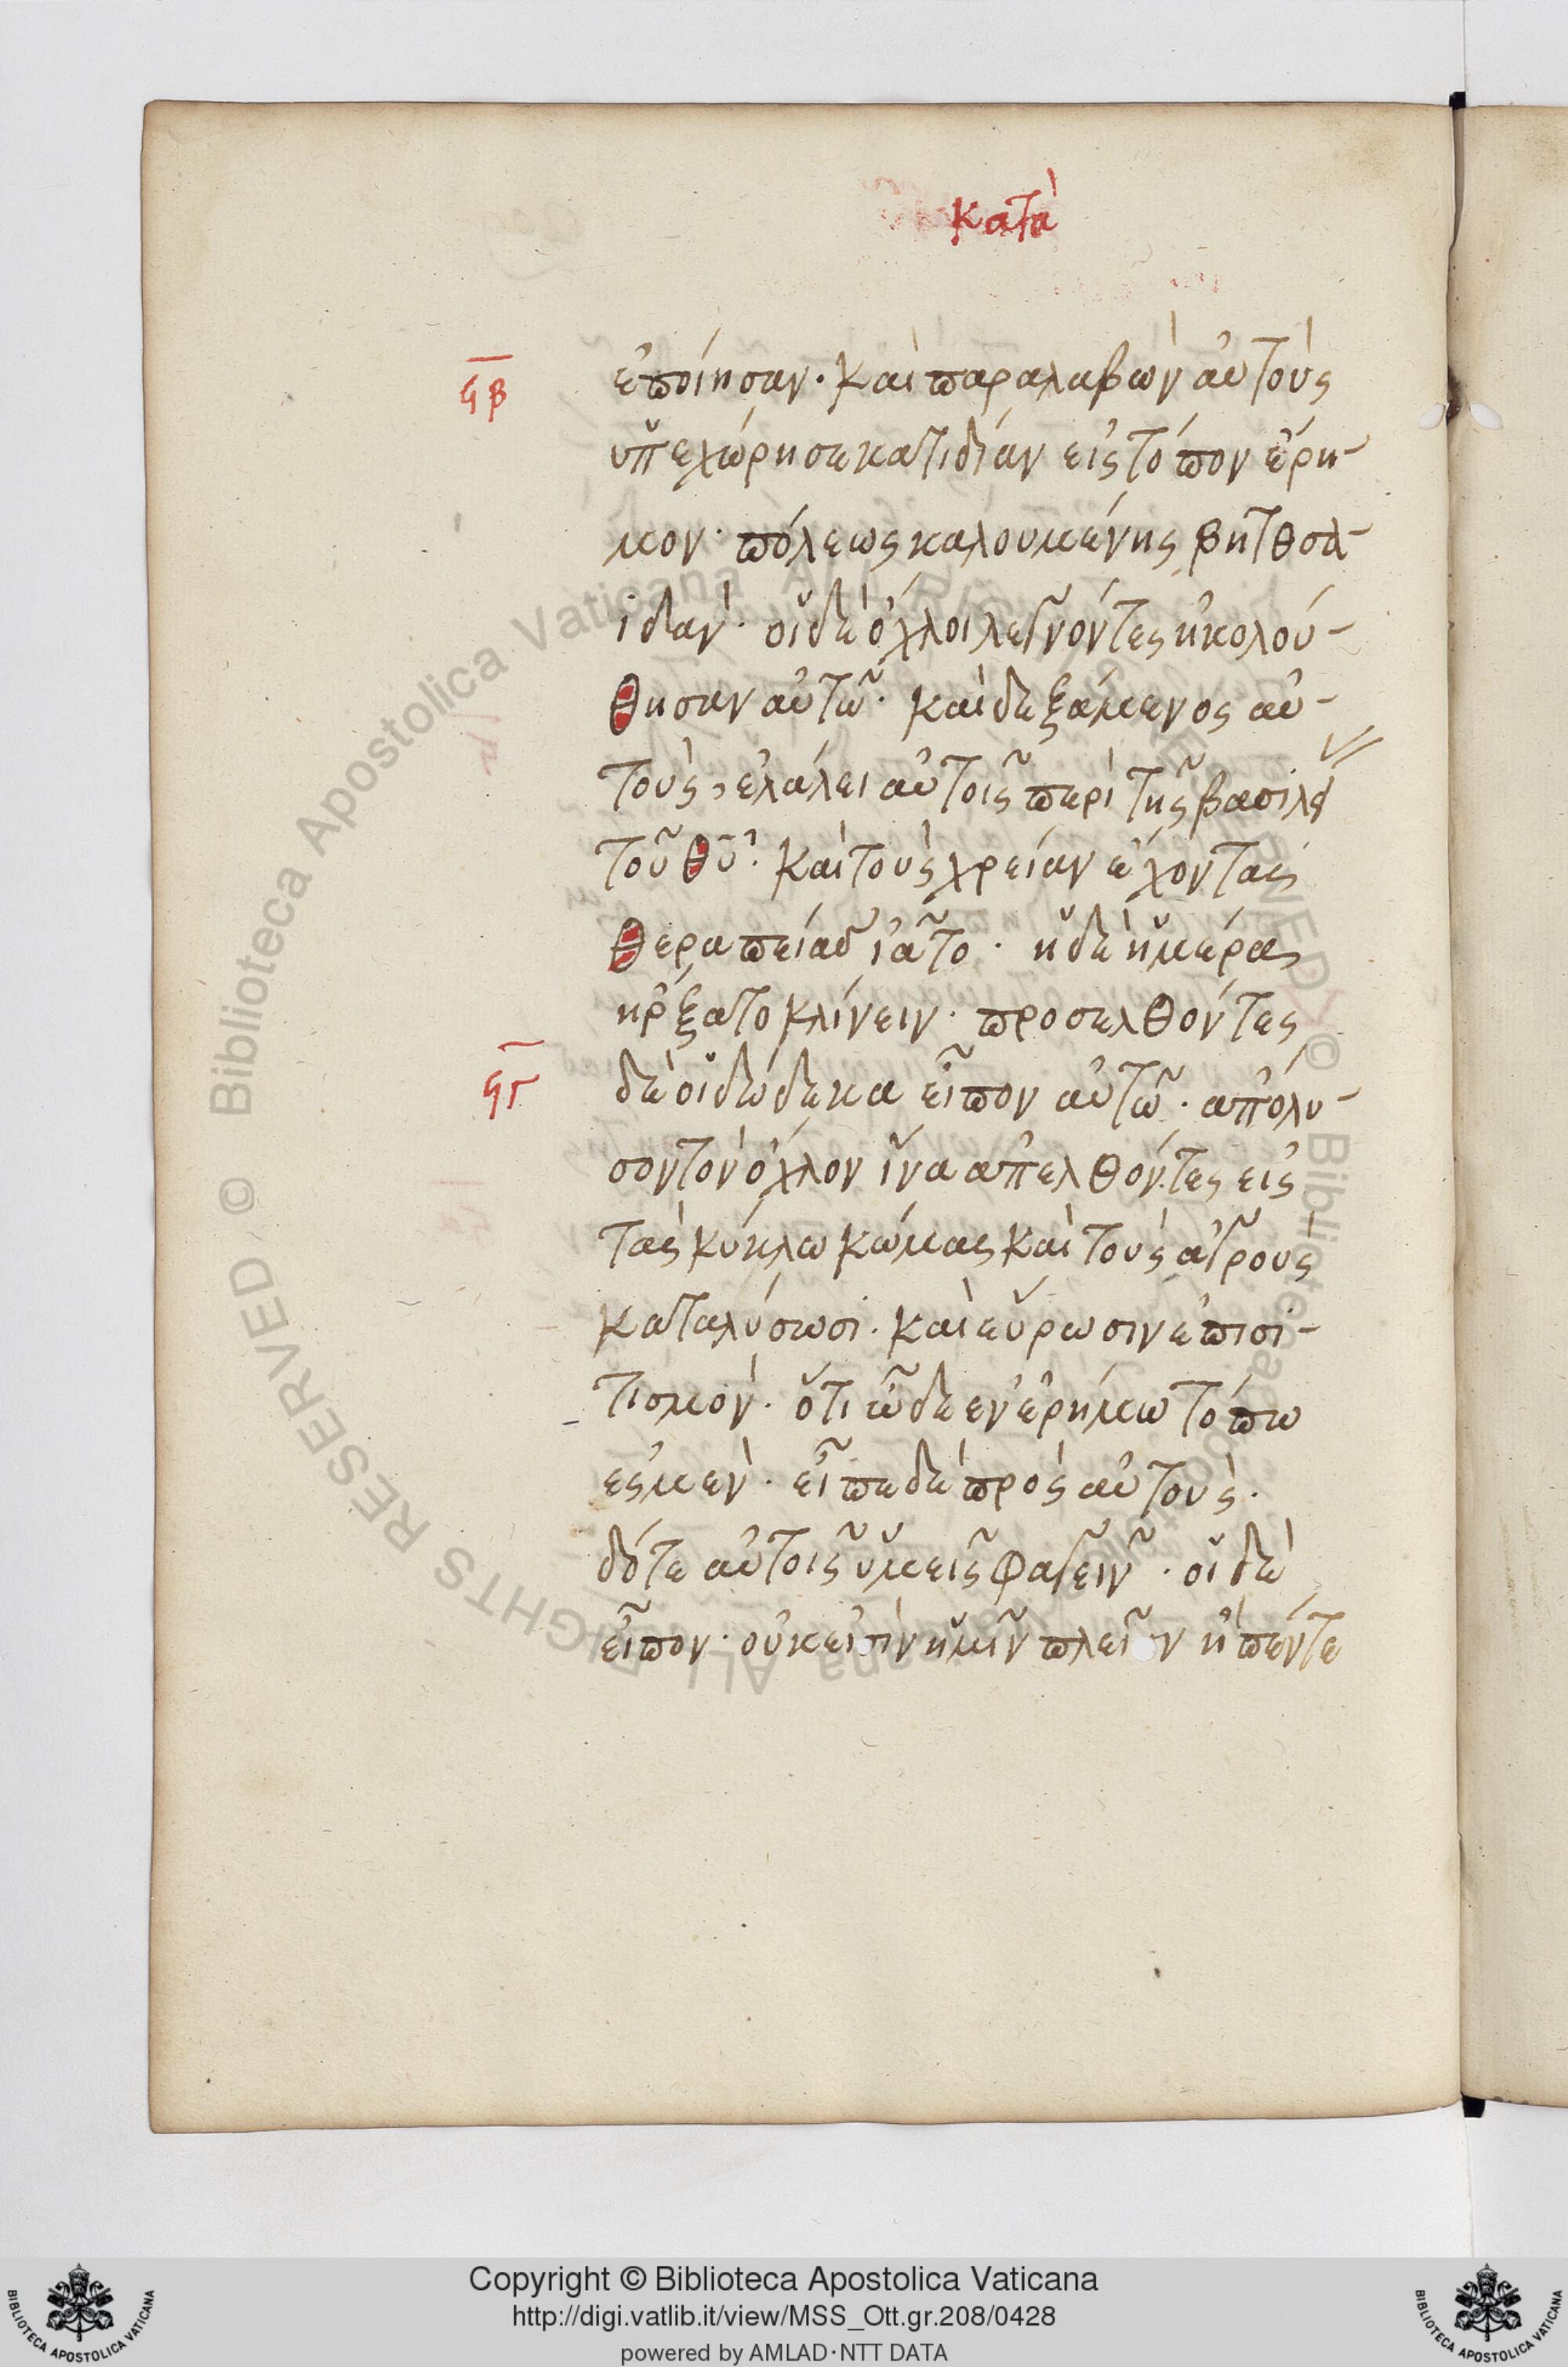 κατὰ
ϟβ
ἐποίησαν· καὶ παραλαβὼν αὐτοὺς
ὑπεχώρησε κατιδίαν εἰς τόπον ἔρη-
μον· πόλεως καλουμένης βητθσα-
ϊδὰν· οἱ δὲ ὄχλοι γνόντες ἠκολού-
θησαν αὐτῶ· καὶ δεξάμενος αὐ-
τοὺς, ἐλάλει αὐτοῖς περὶ τῆς βασιλεί
τοῦ θ̅υ̅· καὶ τοὺς χρείαν ἔχοντας
θεραπείασ ἰᾶτο· ἡ δὲ ἡμέρας
ἤρξατο κλίνειν· προσελθόντες
ϟγ
δὲ οἱ δώδεκα εἶπον αὐτῶ· ἀπόλυ-
σον τὸν ὄχλον ἵνα ἀπελθόντες εἰς
τὰς κύκλω κώμας καὶ τοὺς ἀγροὺς
καταλύσωσι· καὶ εὕρωσιν ἐπισι-
τισμὸν· ὅτι ὧδε ἐν ἐρήμω τόπω
ἐσμὲν· εἶπε δὲ πρὸς αὐτοὺς·
δότε αὐτοῖς ὑμεῖς φαγεῖν· οἱ δὲ
εἶπον· οὐκ εἰσὶν ἡμῖν πλεῖον ἢ πέντε
Copyright © Biblioteca Apostolica Vaticana
http://digi.vatlib.it/view/MSS_Ott.gr.208/0428
powered by AMLAD·NTT DATA
BIBLIOTECA APOSTOLICA VATICANA
BIBLIOTECA APOSTOLICA VATICANA
© Biblioteca Apostolica Vaticana ALL RIGHTS RESERVED
© Biblioteca Apostolica Vaticana ALL RIGHTS RESERVED